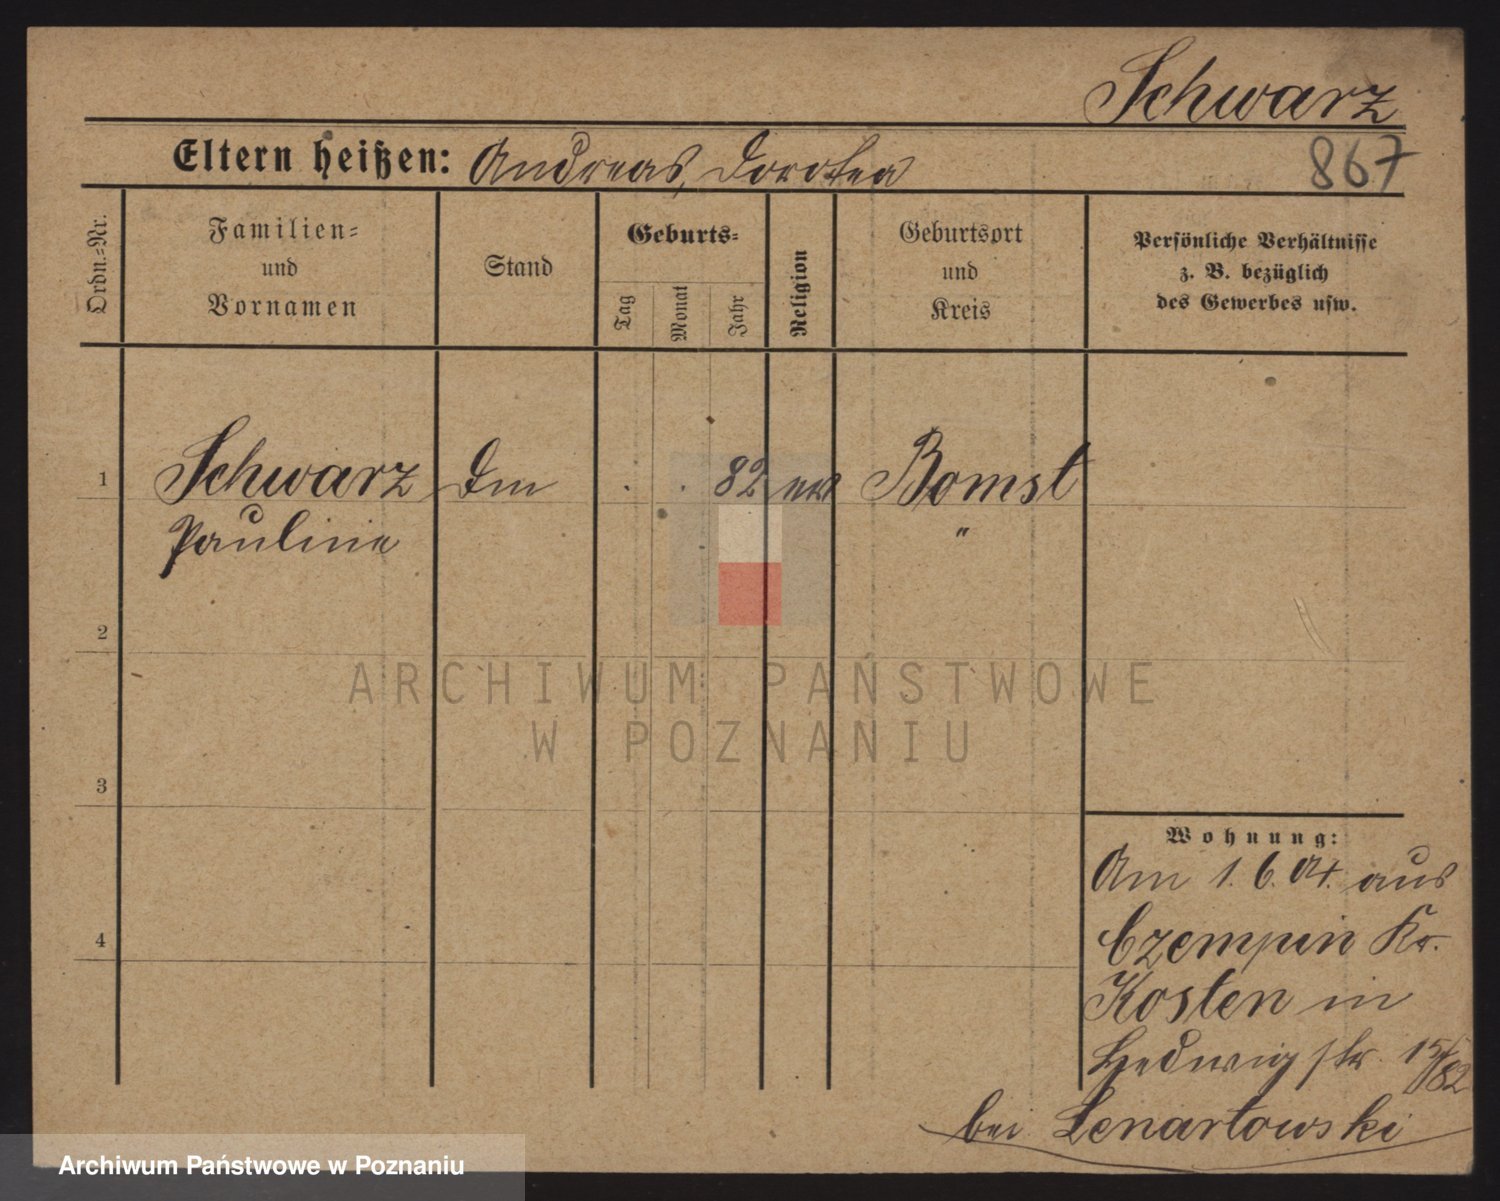 Schwarz
Eltern heißen: Andreas, Dorothea
867
Ordn.-Nr.
Familien-
und
Vornamen
Stand
Geburts-
Tag
Monat
Jahr
Religion
Geburtsort
und
Kreis
Persönliche Verhältnisse
z. B. bezüglich
des Gewerbes usw.
1
Schwarz
Pauline
. . 82
Bomst
"
2
ARCHIWUM PAŃSTWOWE
W POZNANIU
3
4
Wohnung:
Am 1. 6. 04. aus
Czempin Kr.
Kosten in
Hedwigstr. 15
bei Lenartowski
Archiwum Państwowe w Poznaniu